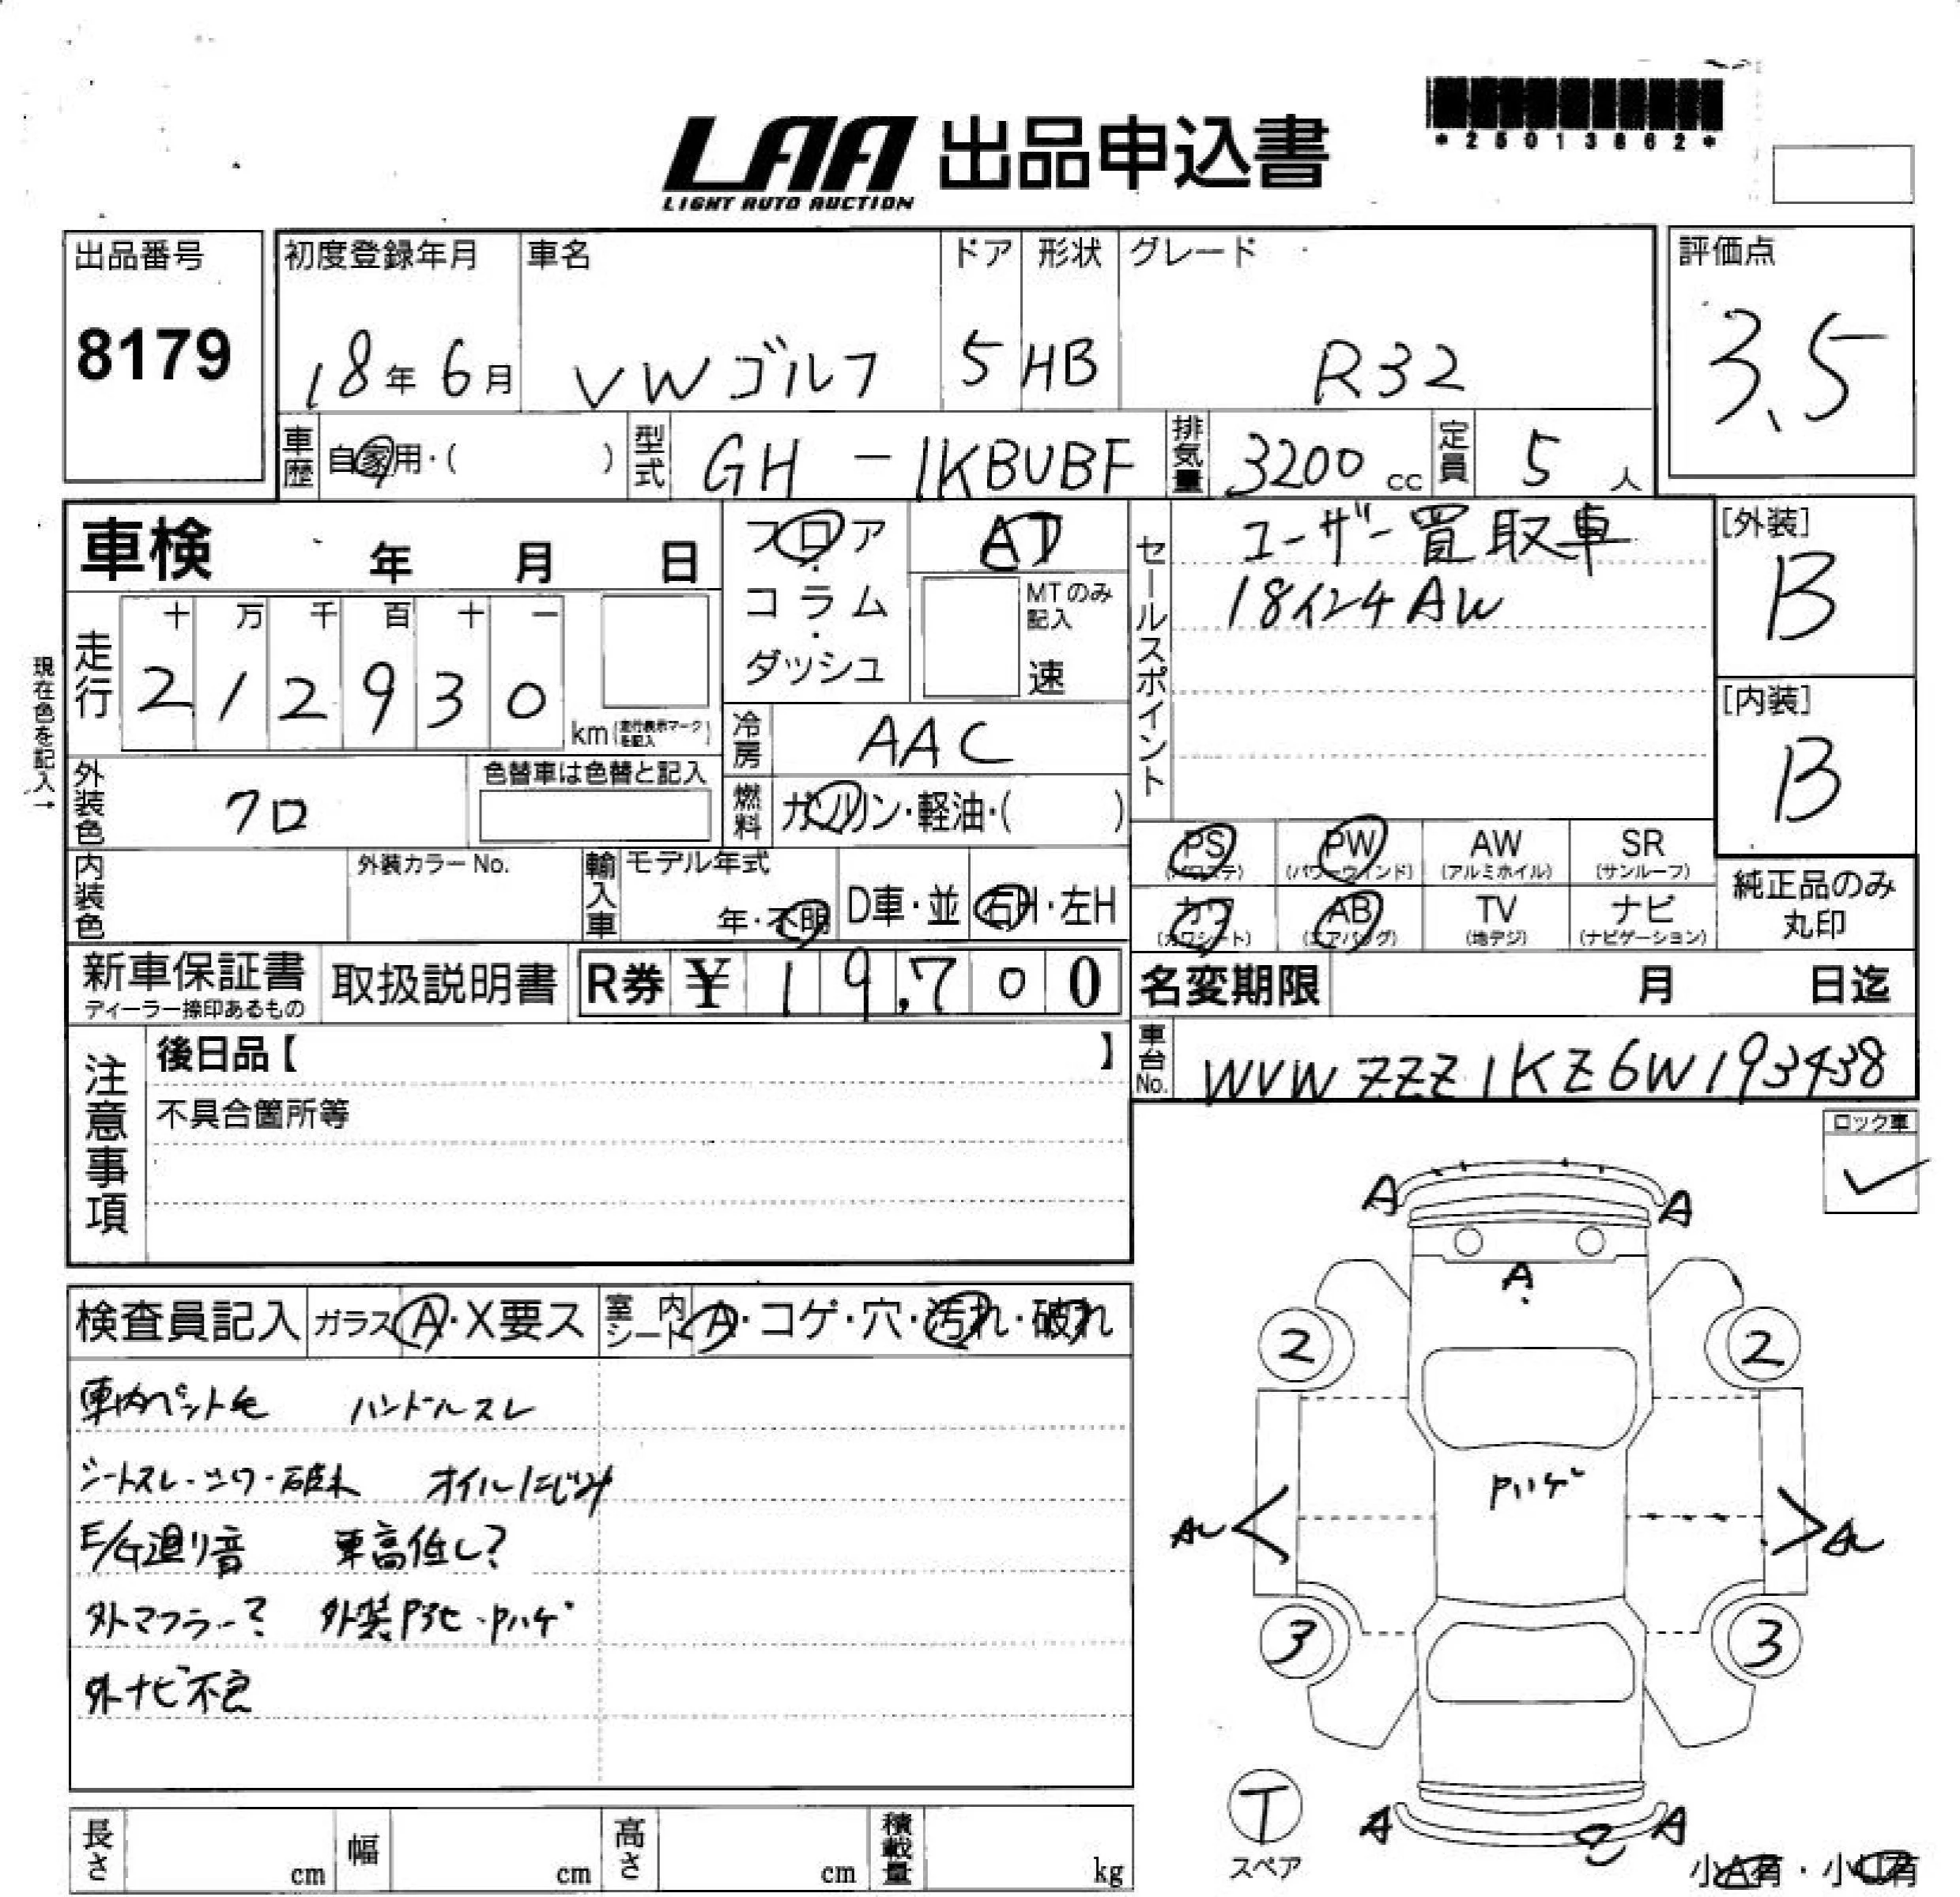 *25013862*
LAA 出品申込書
LIGHT AUTO AUCTION
出品番号
8179
初度登録年月
18年 6月
車名
VW ゴルフ
ドア
5
形状
HB
グレード
R32
評価点
3.5
車歴 自家用・( )
型式 GH - 1KBUBF
排気量 3200 cc
定員 5 人
車検 年 月 日
フロア・コラム・ダッシュ
AT
MTのみ記入
速
セールスポイント
ユーザー買取車
18インチAW
[外装]
B
[内装]
B
現在色を記入→
走行
十 万 千 百 十 一
2 1 2 9 3 0
km (走行表示マークを記入)
冷房 AAC
外装色 クロ
色替車は色替と記入
燃料 ガソリン・軽油・( )
内装色
外装カラーNo.
輸入車
モデル年式
年・不明
D車・並
右H・左H
PS (パワステ)
PW (パワーウインド)
AW (アルミホイル)
SR (サンルーフ)
カワ (カワシート)
AB (エアバッグ)
TV (地デジ)
ナビ (ナビゲーション)
純正品のみ
丸印
新車保証書
ディーラー捺印あるもの
取扱説明書
R券 ¥ 19,700
名変期限 月 日迄
車台No. WVWZZZ1KZ6W193438
注意事項
後日品【 】
不具合箇所等
ロック車
✓
検査員記入
ガラス A・X要ス
室内シート A・コゲ・穴・汚れ・破れ
車内ペット毛 ハンドルスレ
シートスレ・シワ・破れ オイルにじみ
E/G周り音 車高低し?
外マフラー? 外装Pボセ・Pハゲ
外ナビ不良
A A
A
2 2
Pハゲ
AU AU
3 3
A A
T
スペア
小A有・小U有
長さ cm
幅 cm
高さ cm
積載量 kg